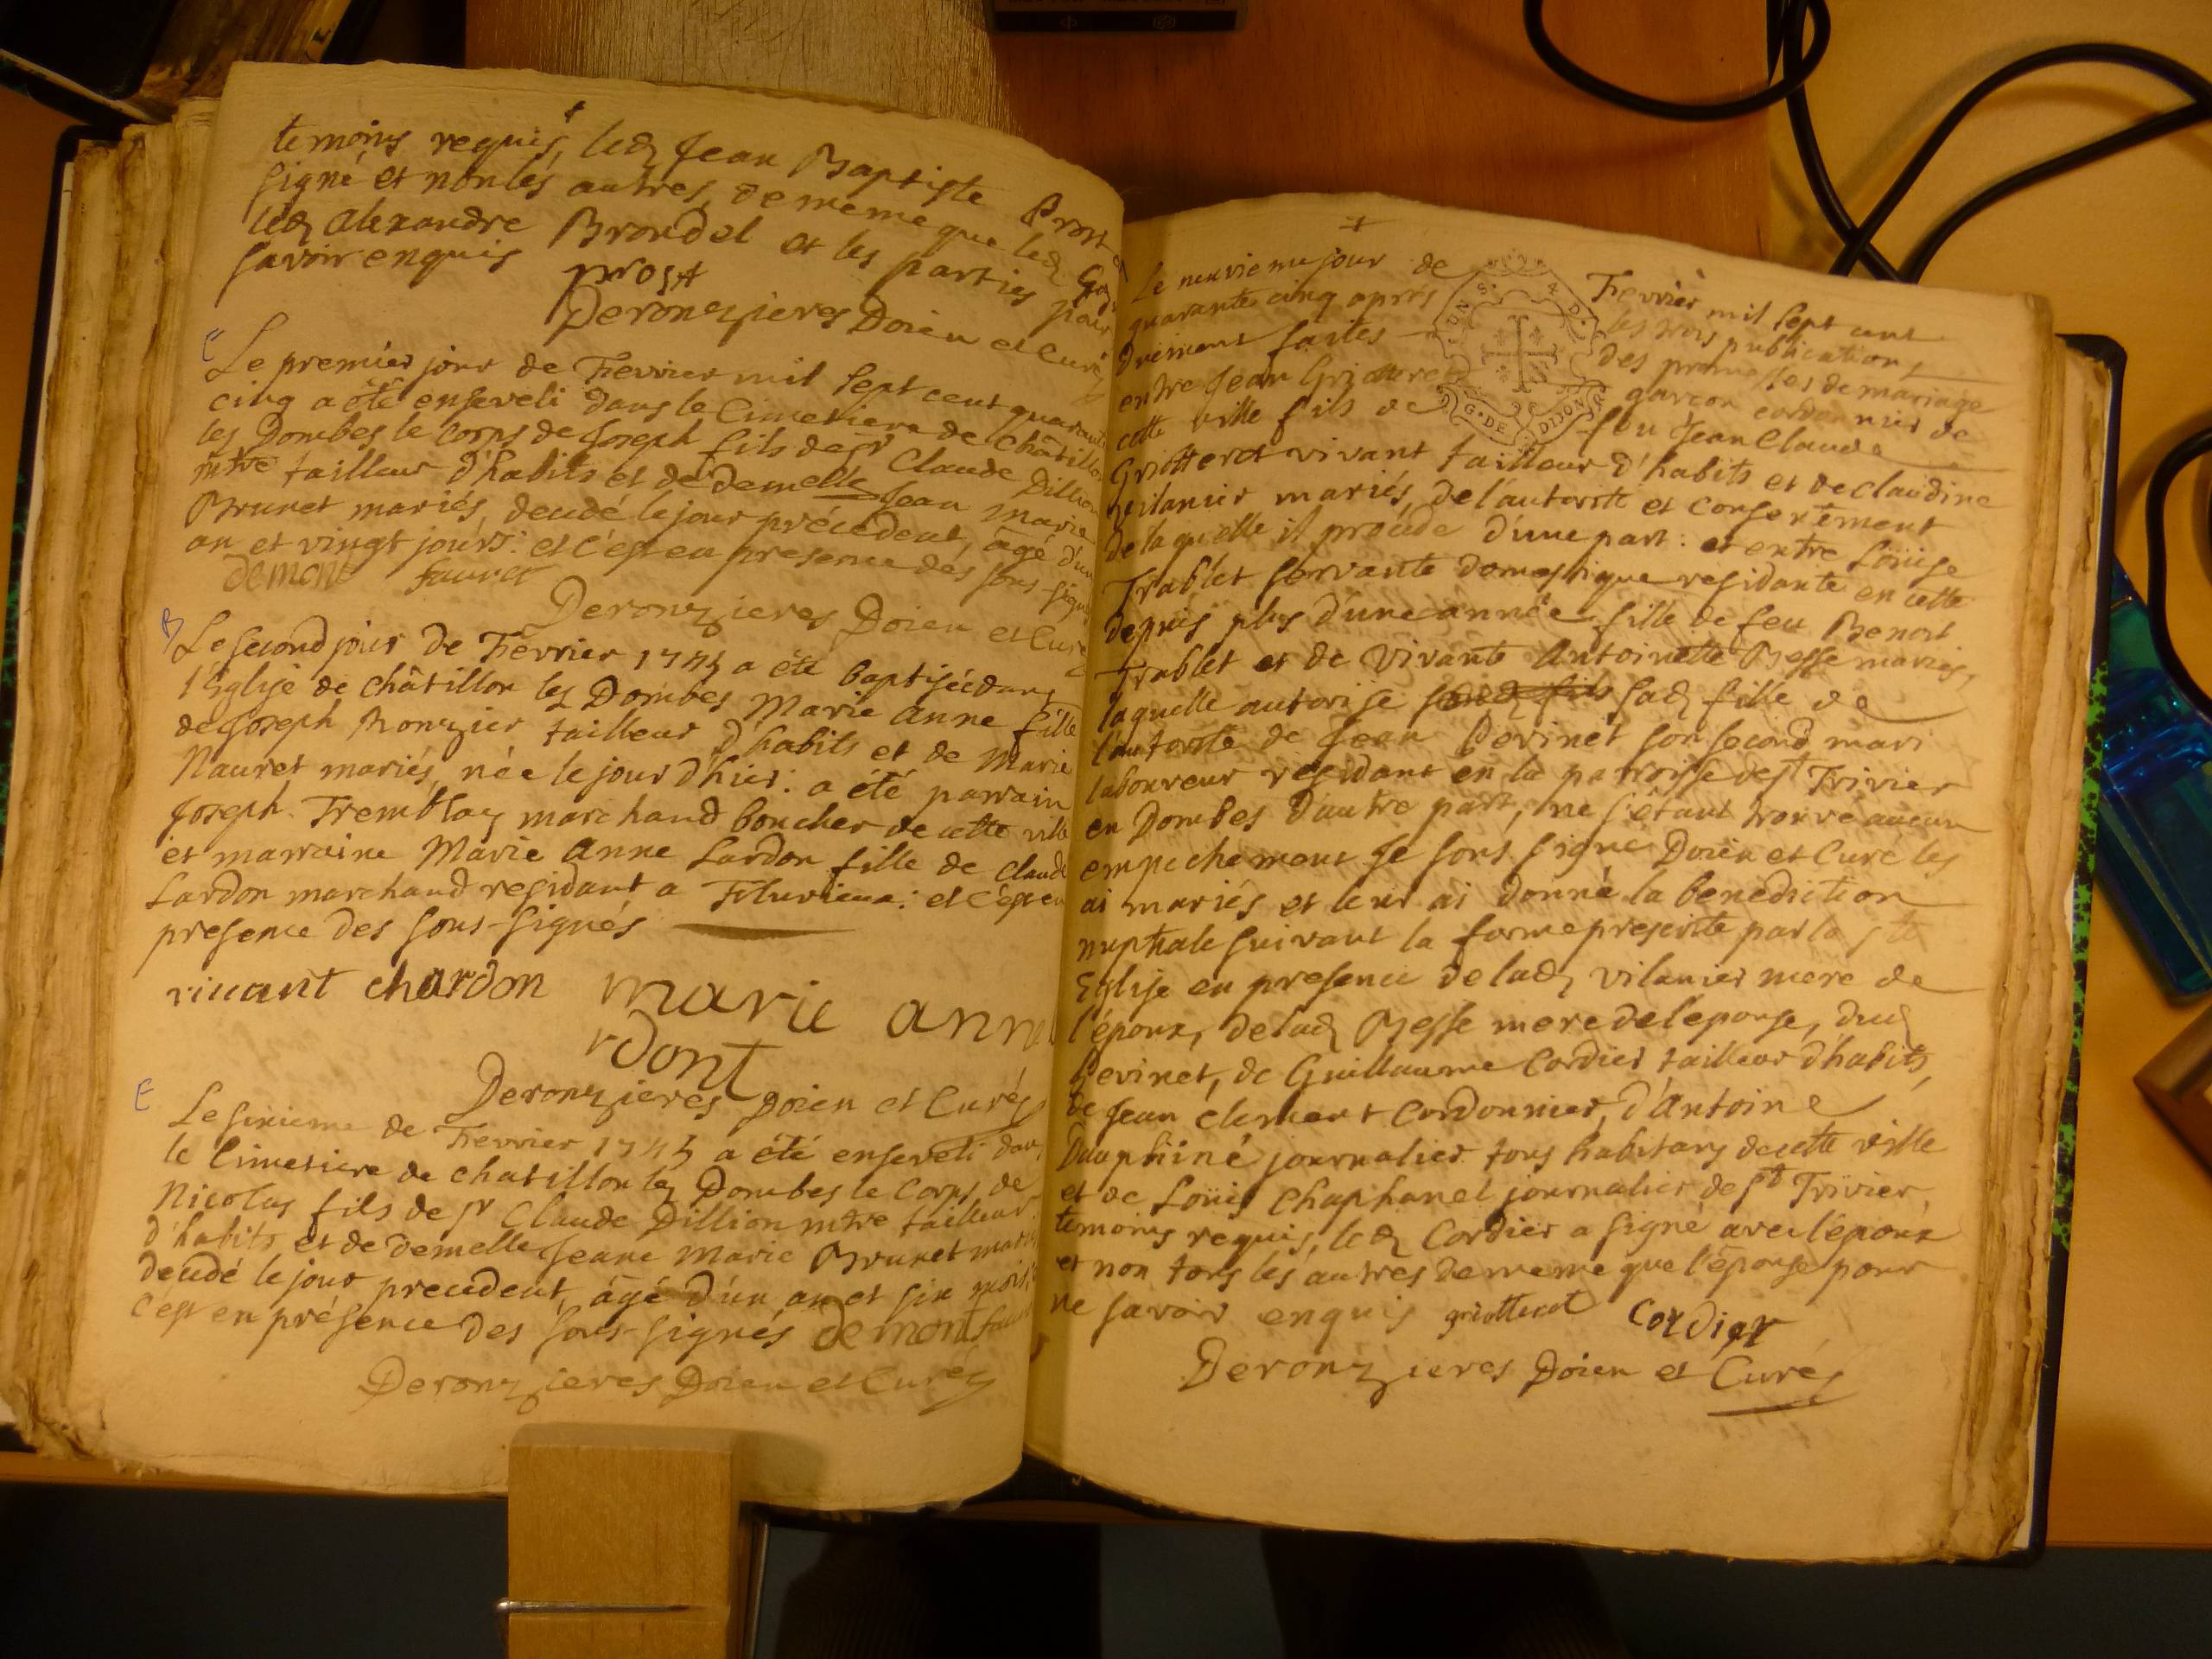 temoins requis, led Jean Baptiste Prost
signé et non les autres, de meme que led
led Alexandre Brondel et les parties pour
savoir enquis
prost
Deronzieres Doien et Curé
E
Le premier jour de Fevrier mil sept cent quarante
cinq a été enseveli dans le Cimetiere de Châtillon
les Dombes le corps de Joseph fils de sr Claude Dillion
mtre tailleur d'habits et de demelle Jean Marie
Brunet mariés, decedé le jour précedent, âgé d'un
an et vingt jours: et c'est en presence des sous-signés
demont fauret
Deronzieres Doien et Curé
B
Le second jour de Fevrier 1745 a été baptisée dans
l'Eglise de Châtillon lez Dombes Marie Anne fille
de Joseph Ronzier tailleur d'habits et de Marie
Nauret mariés, née le jour d'hier: a été parrain
Joseph Tremblay marchand boucher de cette ville
et marraine Marie Anne Lardon fille de Claude
Lardon marchand residant a Fluvieux: et c'est en
presence des sous-signés
vincant chardon marie anne
rdont
Deronzieres Doien et Curé
E
Le sixieme de Fevrier 1745 a été enseveli dans
le Cimetiere de chatillon lez Dombes le Corps de
Nicolas fils de sr Claude Dillion mtre tailleur
d'habits et de demelle Jeane Marie Brunet mariés
decedé le jour precedent, âgé d'un an et six mois:
c'est en présence des sous-signés demont fauret
Deronzieres Doien et Curé
Le neuvieme jour de Fevrier mil sept cent
quarante cinq aprés les trois publications
duement faites des promesses de mariage
entre Jean Griotteret garçon cordonnier de
cette ville fils de feu Jean Claude
Griotteret vivant tailleur d'habits et de claudine
vilanier mariés, de l'autorité et consentement
de laquelle il procede d'une part: et entre Loüise
Trablet servante domestique residante en cette
depuis plus d'une année fille de feu Benoit
Trablet et de vivante Antoinette Besse mariés,
laquelle autorise sad fille de
l'autorité de Jean Pevinet son second mari
laboureur residant en la paroisse de st Trivier
en Dombes d'autre part, ne s'étant trouvé aucun
empechement Je sous signé Doïen et Curé les
ai mariés et leur ai donné la benediction
nuptiale suivant la forme prescrite par la ste
Eglise en presence de lad vilanier mere de
l'époux, de lad Besse mere de l'epouse, dud
Pevinet, de Guillaume Cordier tailleur d'habits,
de Jean clement Cordonnier, d'Antoine
Dauphiné journalier tous habitans de cette ville
et de Loüis Chaphanel journalier de st Trivier,
temoins requis, led Cordier a signé avec l'époux
et non tous les autres de meme que l'épouse pour
ne savoir enquis griotteret Cordier
Deronzieres Doien et Curé
G. DE DIJON